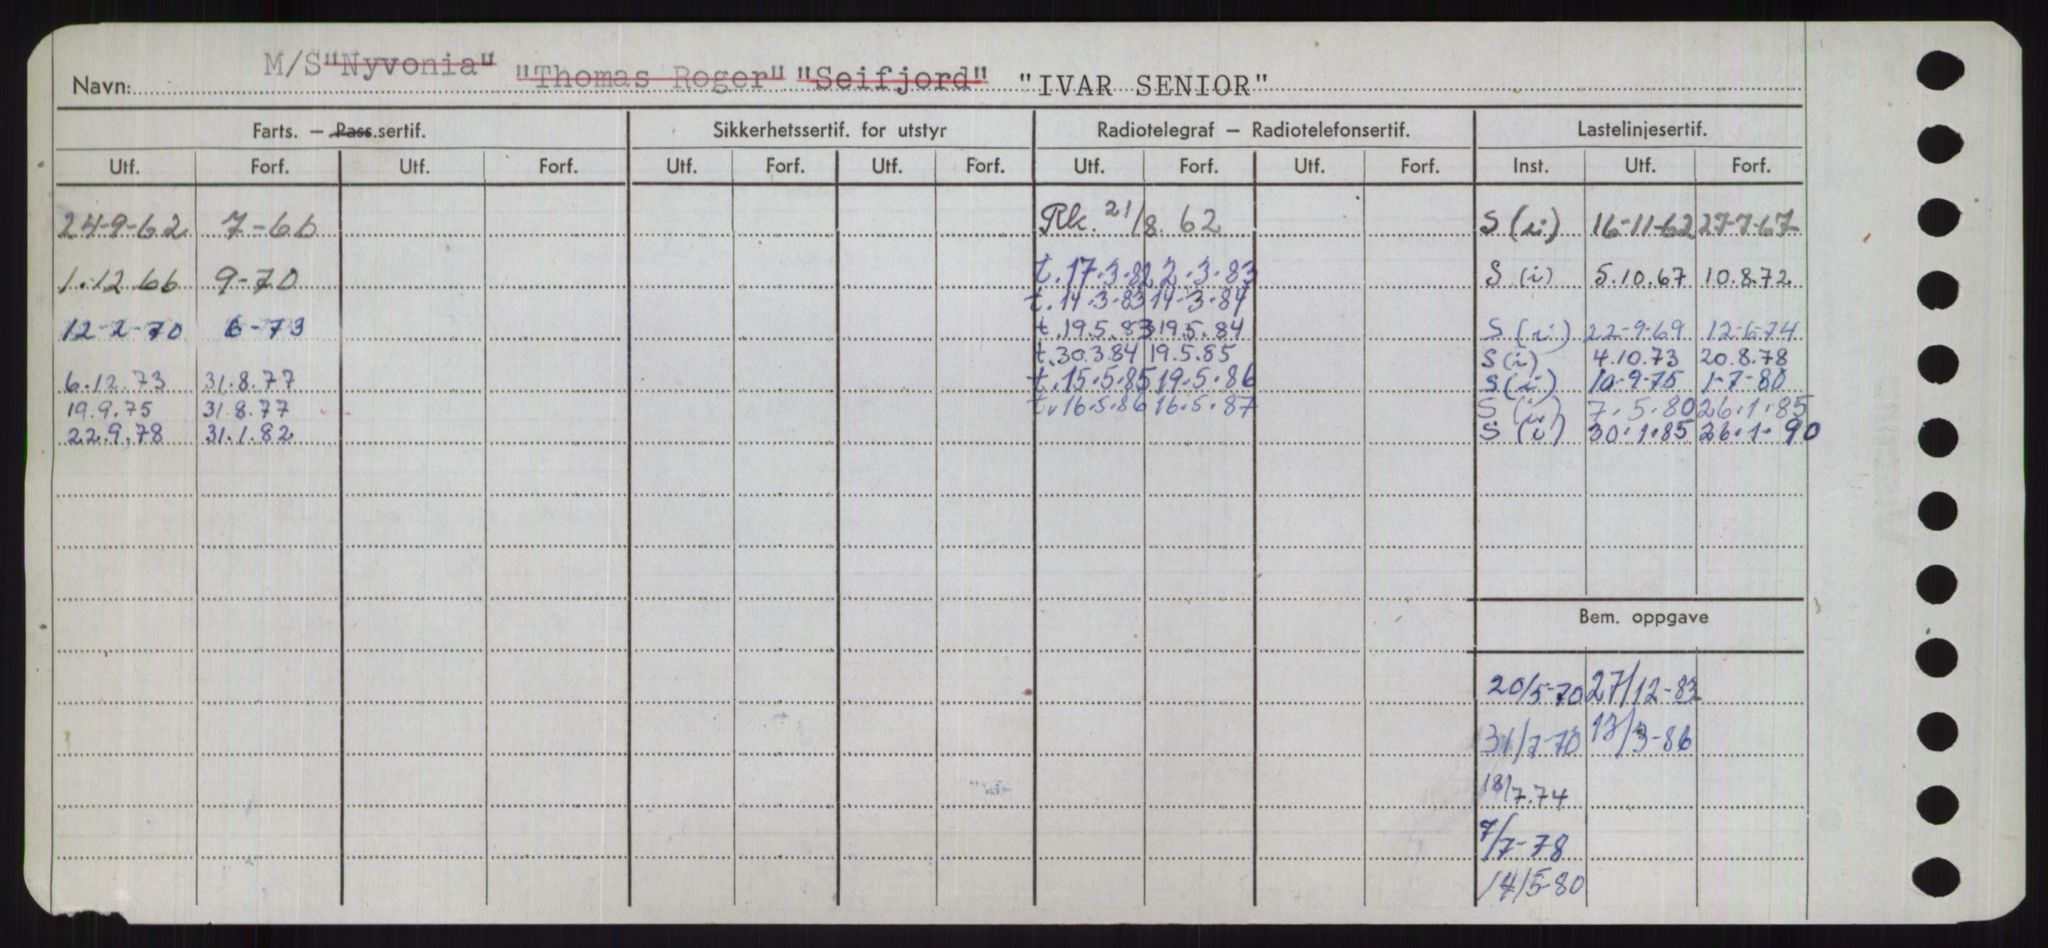 Navn: M/S "Nyvonia" "Thomas Roger" "Seifjord" "IVAR SENIOR"
Farts. — Pass.sertif. Sikkerhetssertif. for utstyr Radiotelegraf — Radiotelefonsertif. Lastelinjesertif.
Utf. Forf. Utf. Forf. Utf. Forf. Utf. Forf. Utf. Forf. Utf. Forf. Inst. Utf. Forf.
24-9-62 7-66 Rk. 21/8. 62 S (i) 16-11-62 27-7-67
1.12 66 9-70 t.17.3.82 2.3.83 S (i) 5.10.67 10.8.72
t.14.3.83 14-3-84
12-2-70 6-73 t.19.5.83 19.5.84 S (i) 22-9-69 12-6-74
t.30.3.84 19.5.85 S (i) 4.10.73 20.8.78
6.12.73 31.8.77 t.15.5.85 19.5.86 S (i) 10-9-75 1-7-80
19.9.75 31.8.77 t.16.5.86 16.5.87 S (i) 7.5.80 26.1.85
22.9.78 31.1.82 S (i) 30.1.85 26.1.90
Bem. oppgave
20/5-70 27/12-83
31/7-70 17/3-86
18/7.74
7/7-78
14/5-80